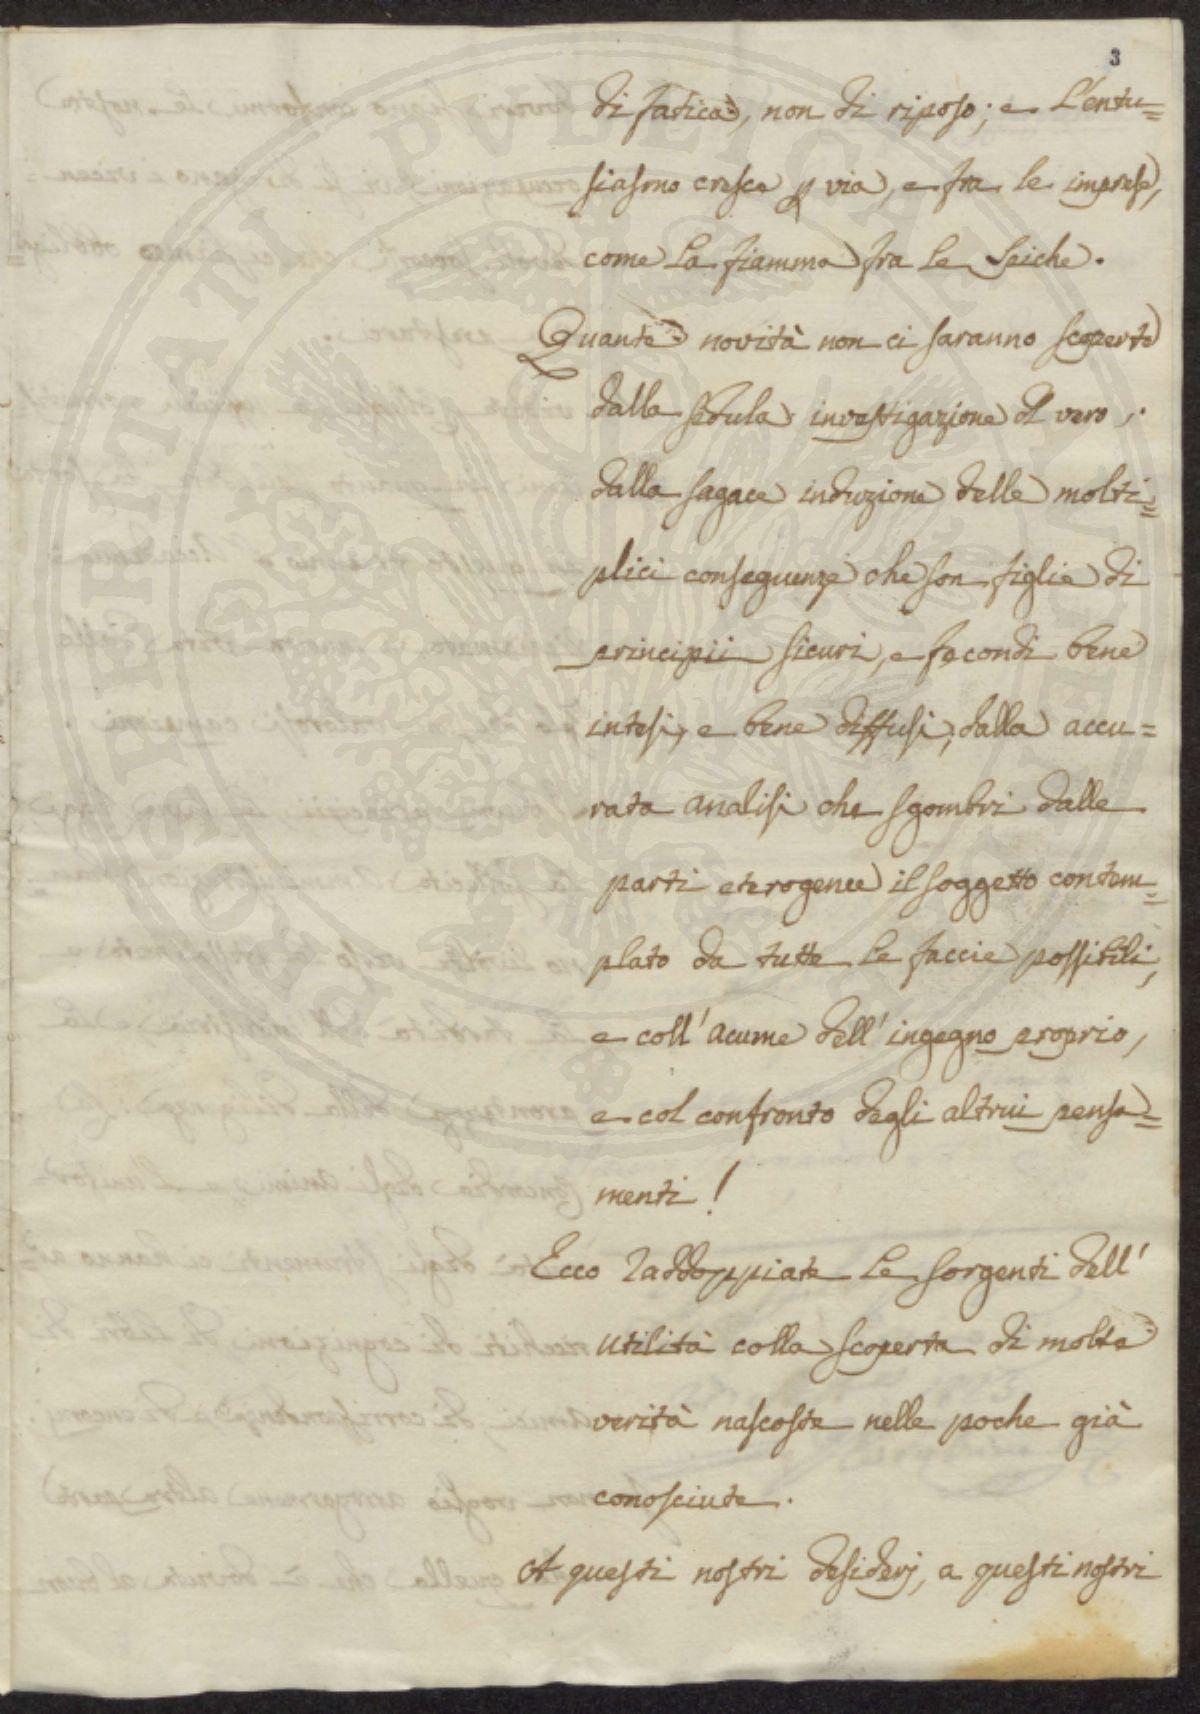 3
di fatica, non di riposo; e l'entu=
siasmo cresce p via, e fra le imprese,
come la fiamma fra le seiche.
Quante novità non ci saranno scoperte
dalla sedula investigazione dl vero,
dalla sagace induzione delle molti=
plici conseguenze che son figlie di
principii sicuri, e fecondi bene
intesi, e bene diffusi; dalla accu=
rata analisi che sgombri dalle
parti eterogenee il soggetto contem=
plato da tutte le faccie possibili,
e coll'acume dell'ingegno proprio,
e col confronto degli altrui pensa=
menti!
Ecco raddoppiate le sorgenti dell'
utilità colla scoperta di molte
verità nascoste nelle poche già
conosciute.
A questi nostri desiderj, a questi nostri